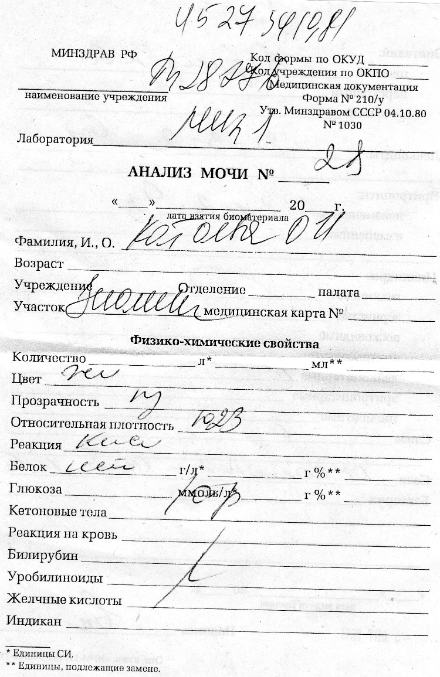 МИНЗДРАВ РФ
наименование учреждения
Код формы по ОКУД
Код учреждения по ОКПО
Медицинская документация
Форма № 210/у
Утв. Минздравом СССР 04.10.80
№ 1030
Лаборатория
АНАЛИЗ МОЧИ № 28
« » 20 г.
дата взятия биоматериала
Фамилия, И., О.
Возраст
Учреждение Отделение палата
Участок медицинская карта №
Физико-химические свойства
Количество л* мл**
Цвет жел
Прозрачность
Относительная плотность 1023
Реакция кисл
Белок нет г/л* г %**
Глюкоза ммоль/л* г %**
Кетоновые тела
Реакция на кровь
Билирубин
Уробилиноиды
Желчные кислоты
Индикан
* Единицы СИ.
** Единицы, подлежащие замене.